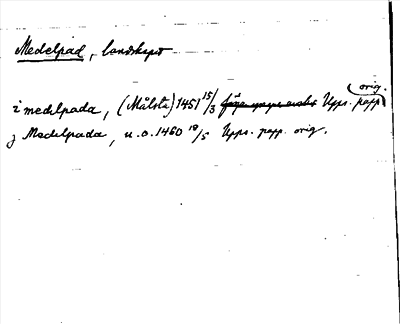 Medelpad, landskap
orig.
i medelpada, (Målsta) 1451 15/3 Upps. papp
j Medelpada, u.o. 1460 18/5 Upps. papp. orig.